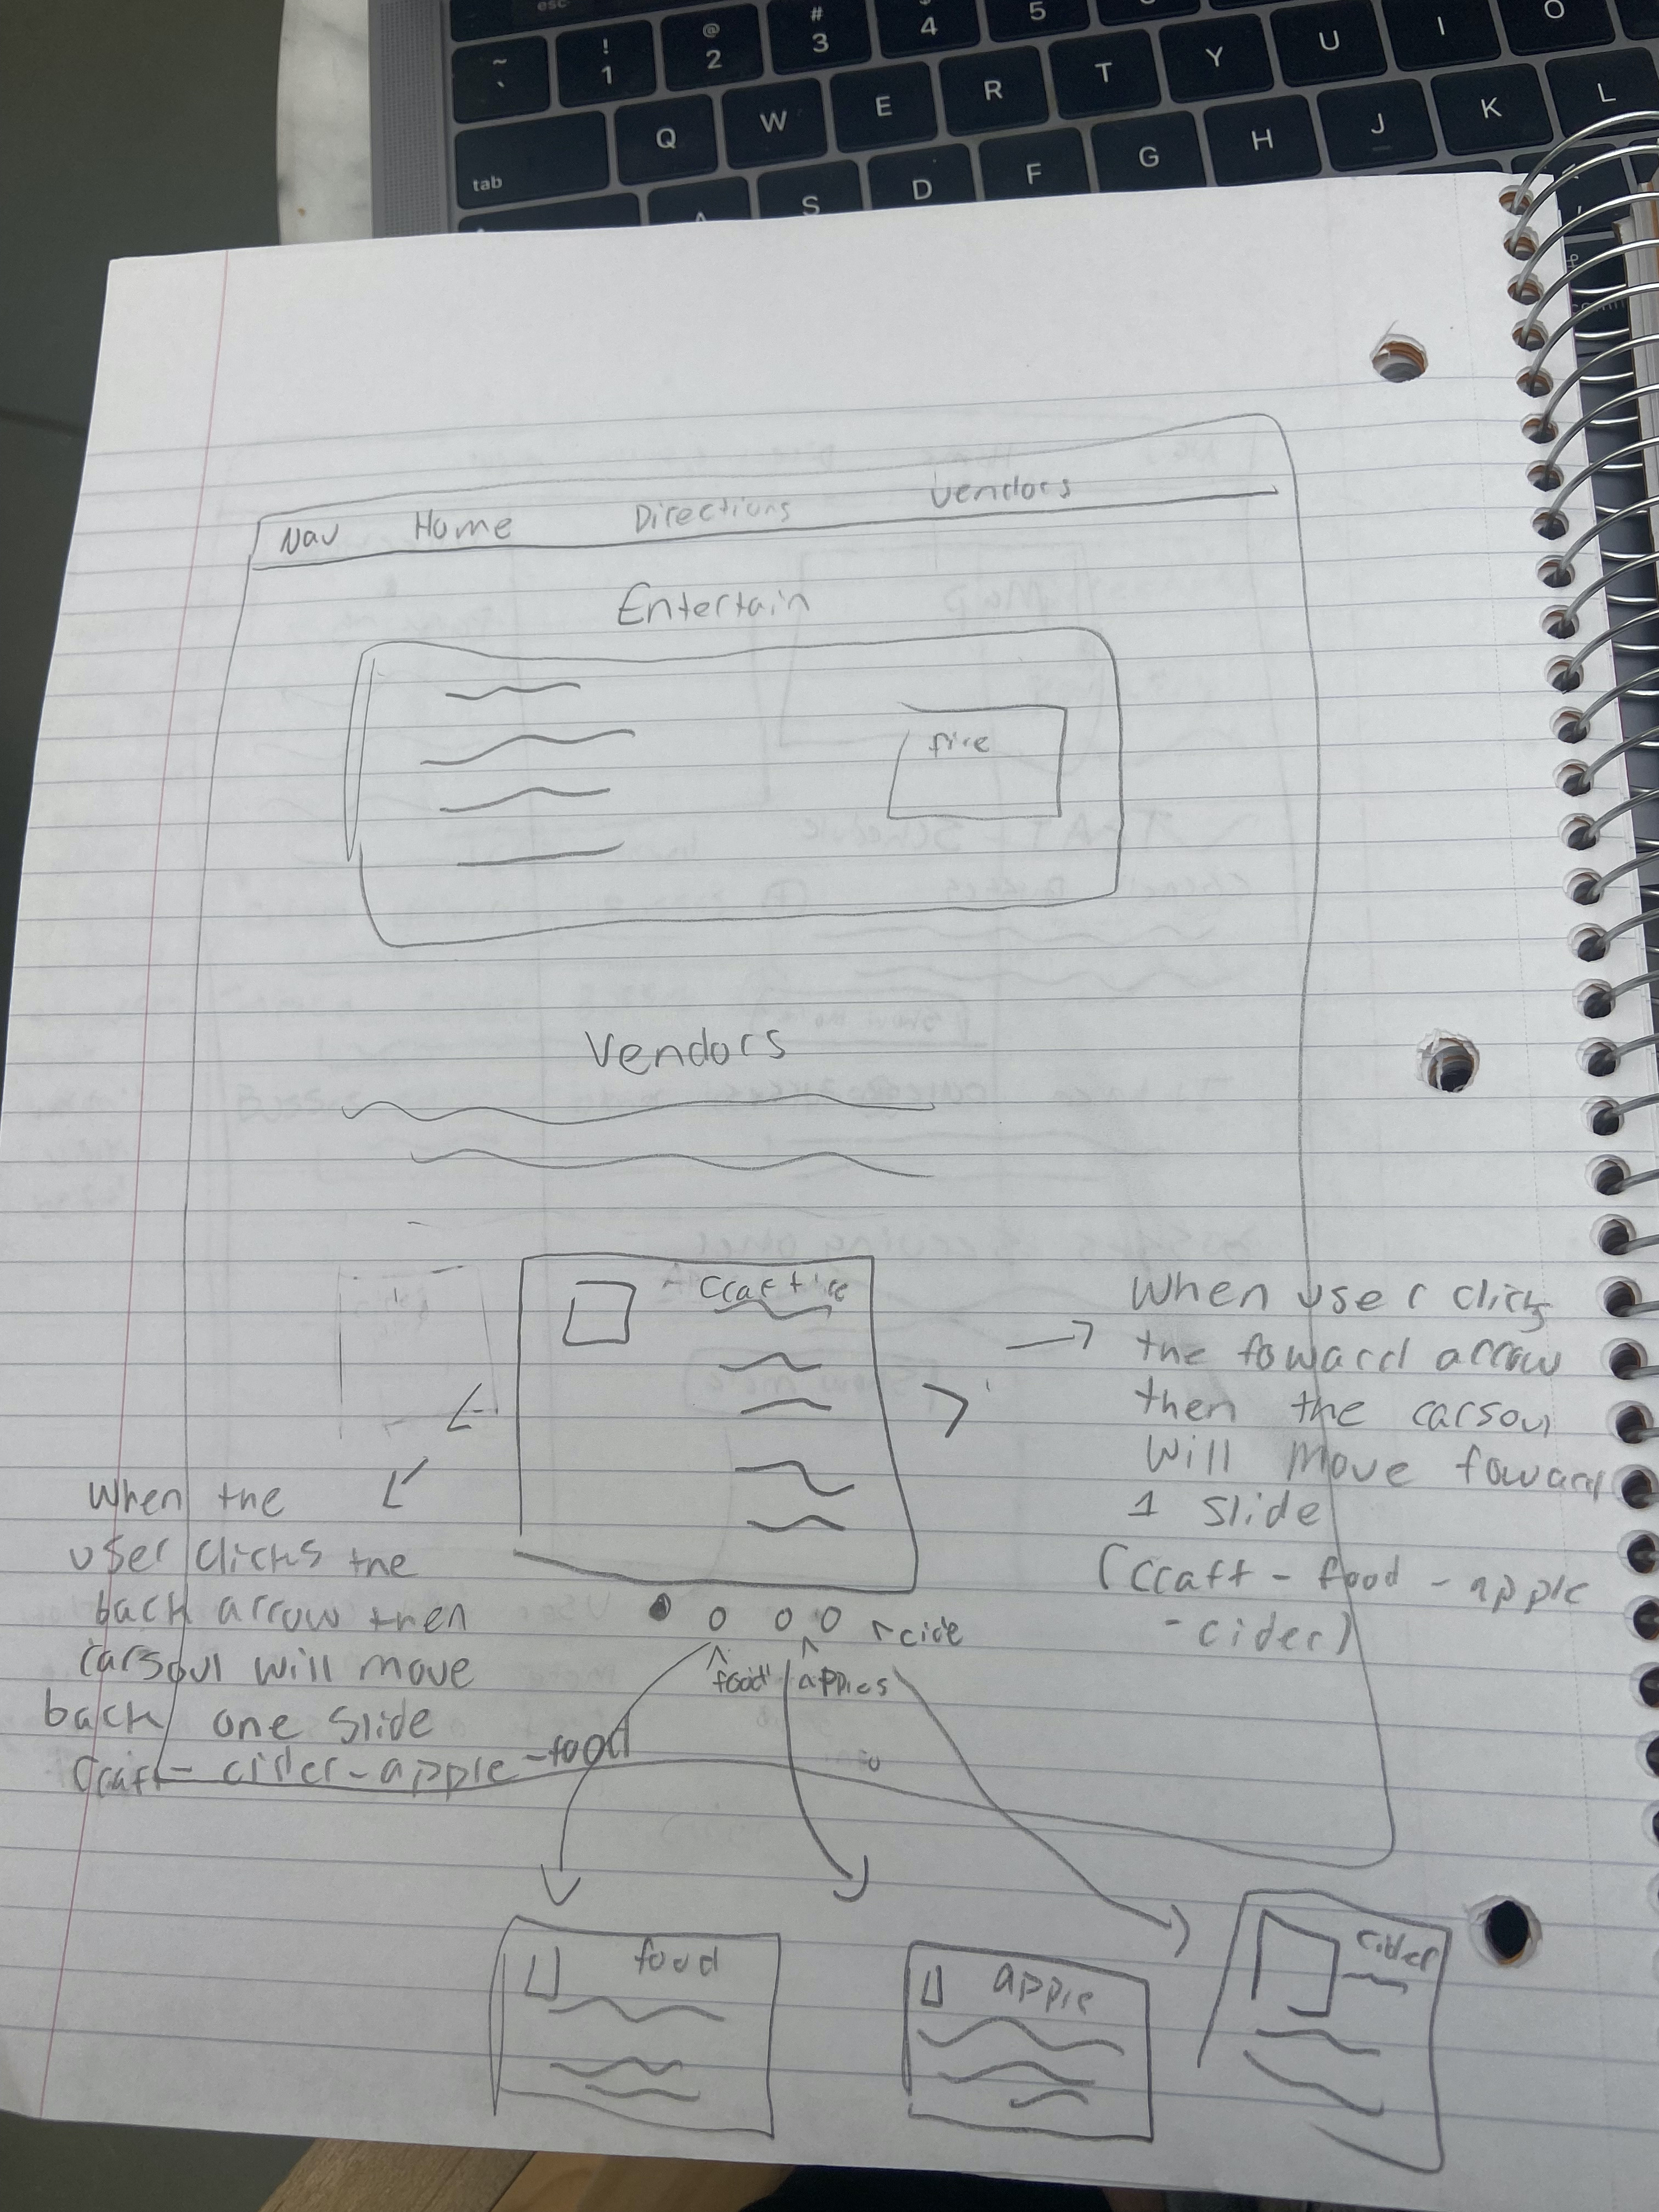 esc
~ ` ! 1 @ 2 # 3 $ 4 5
tab Q W E R T Y U I O
A S D F G H J K L
Nav Home Directions vendors
Entertain
fire
Vendors
Craft
When user clicks
the foward arrow
then the carsoul
will move foward
1 slide
(Craft - food - apple
- cider)
When the
user clicks the
back arrow then
carsoul will move
back one slide
Craft - cider - apple - food
food apples
food
apple
cider